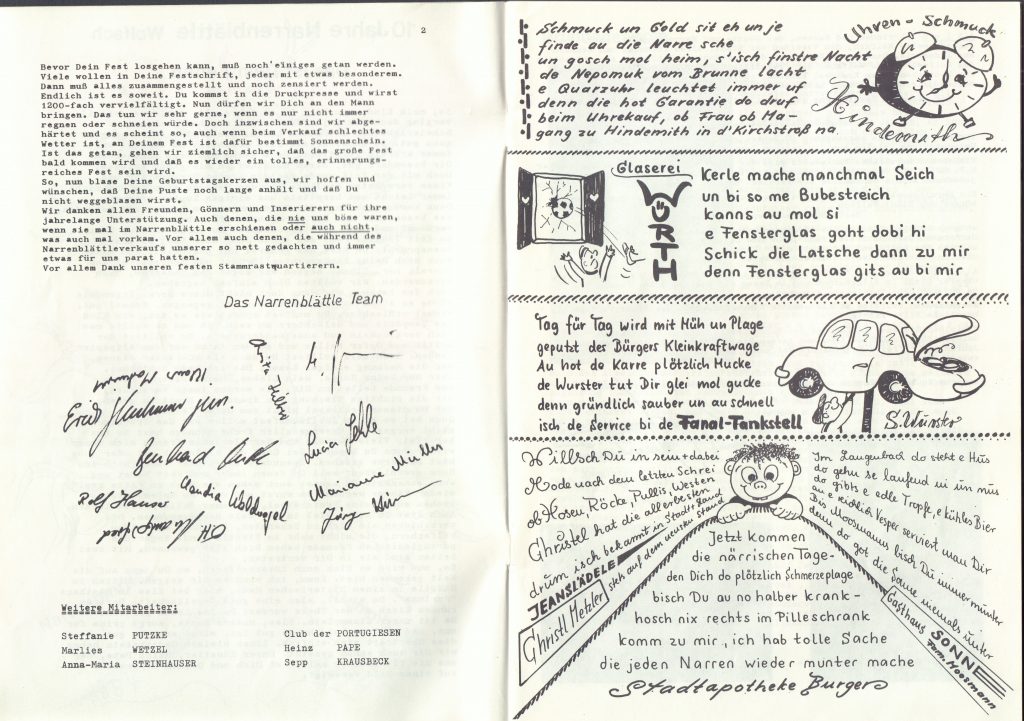 2
Bevor Dein Fest losgehen kann, muß noch einiges getan werden.
Viele wollen in Deine Festschrift, jeder mit etwas besonderem.
Dann muß alles zusammengestellt und noch zensiert werden.
Endlich ist es soweit. Du kommst in die Druckpresse und wirst
1200-fach vervielfältigt. Nun dürfen wir Dich an den Mann
bringen. Das tun wir sehr gerne, wenn es nur nicht immer
regnen oder schneien würde. Doch inzwischen sind wir abge-
härtet und es scheint so, auch wenn beim Verkauf schlechtes
Wetter ist, an Deinem Fest ist dafür bestimmt Sonnenschein.
Ist das getan, gehen wir ziemlich sicher, daß das große Fest
bald kommen wird und daß es wieder ein tolles, erinnerungs-
reiches Fest sein wird.
So, nun blase Deine Geburtstagskerzen aus, wir hoffen und
wünschen, daß Deine Puste noch lange anhält und daß Du
nicht weggeblasen wirst.
Wir danken allen Freunden, Gönnern und Inserierern für ihre
jahrelange Unterstützung. Auch denen, die nie uns böse waren,
wenn sie mal im Narrenblättle erschienen oder auch nicht,
was auch mal vorkam. Vor allem auch denen, die während des
Narrenblättleverkaufs unserer so nett gedachten und immer
etwas für uns parat hatten.
Vor allem Dank unseren festen Stammrastquartierern.
Das Narrenblättle Team
Anita Hilber
Lucia Sehle
Claudia Waldvogel
Marianne Müller
Rolf Hauser
Weitere Mitarbeiter:
Steffanie PUTZKE
Marlies WETZEL
Anna-Maria STEINHAUSER
Club der PORTUGIESEN
Heinz PAPE
Sepp KRAUSBECK
Schmuck un Gold sit eh un je
finde au die Narre sche
un gosch mol heim, s'isch finstre Nacht
de Nepomuk vom Brunne lacht
e Quarzuhr leuchtet immer uf
denn die hot Garantie do druf
beim Uhrekauf, ob Frau ob Ma-
gang zu Hindemith in d'Kirchstroß na
Uhren - Schmuck
Hindemith
Glaserei
WÜRTH
Kerle mache manchmal Seich
un bi so me Bubestreich
kanns au mol si
e Fensterglas goht dobi hi
Schick die Latsche dann zu mir
denn Fensterglas gits au bi mir
Tag für Tag wird mit Müh un Plage
geputzt des Bürgers Kleinkraftwage
Au hot de Karre plötzlich Mucke
de Wurster tut Dir glei mol gucke
denn gründlich sauber un au schnell
isch de Service bi de Fanal-Tankstell
S. Wurster
Willsch Du in sein + dabei
Mode nach dem letzten Schrei
ob Hosen, Röcke, Pullis, Westen
Christel hat die allerbesten
drum isch bekannt in Stadt + Land
JEANSLÄDELE steh auf dem neusten Stand
Christl Metzler
Jetzt kommen
die närrischen Tage-
den Dich do plötzlich Schmerzeplage
bisch Du au no halber krank-
hosch nix rechts im Pilleschrank
komm zu mir, ich hab tolle Sache
die jeden Narren wieder munter mache
Stadtapotheke Burger
Im Langenbach do steht e Hus
do gehn se laufend ni un nus
do gibts e edle Tropfe, e kühles Bier
au e zeidlich Vesper serviert man Dir
Bis Moosmanns bisch Du immer munter
denn do got die Sonne niemals unter
Gasthaus SONNE
Fam. Moosmann